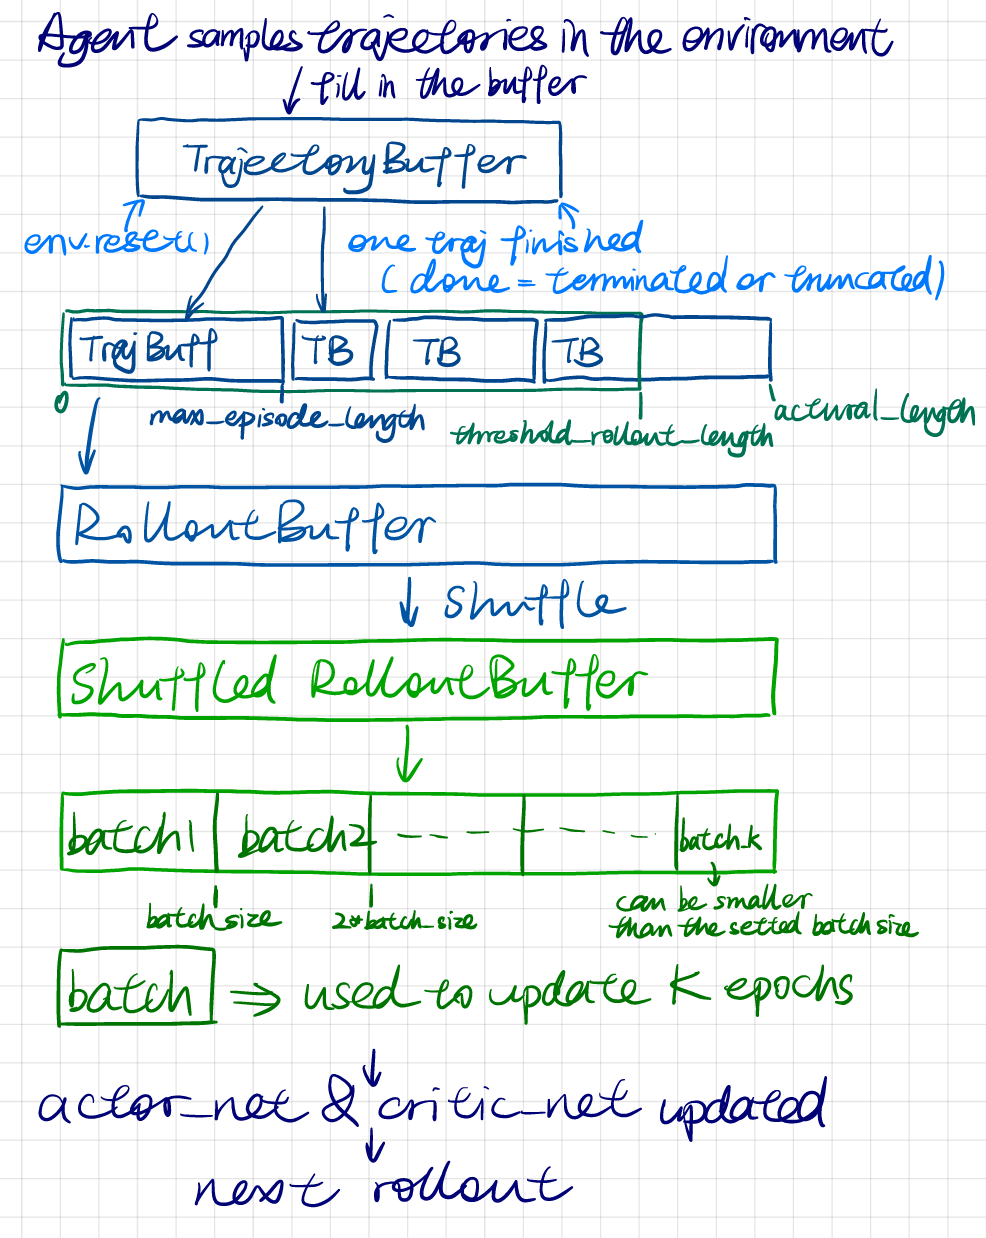 Agent samples trajectories in the environment
fill in the buffer
TrajectoryBuffer
env.reset()
one traj finished
(done = terminated or truncated)
TrajBuff TB TB TB
0
max_episode_length
actural_length
threshold_rollout_length
RolloutBuffer
shuffle
Shuffled RolloutBuffer
batch1 batch2 batch_k
batch_size
2*batch_size
can be smaller
than the setted batch size
batch ⇒ used to update K epochs
actor_net & critic_net updated
next rollout